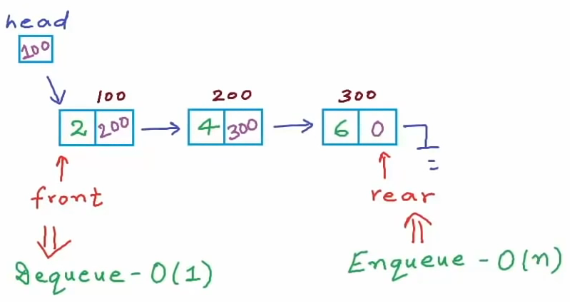 head
100
100 200 300
2 200 4 300 6 0
front rear
Dequeue - O(1) Enqueue - O(n)